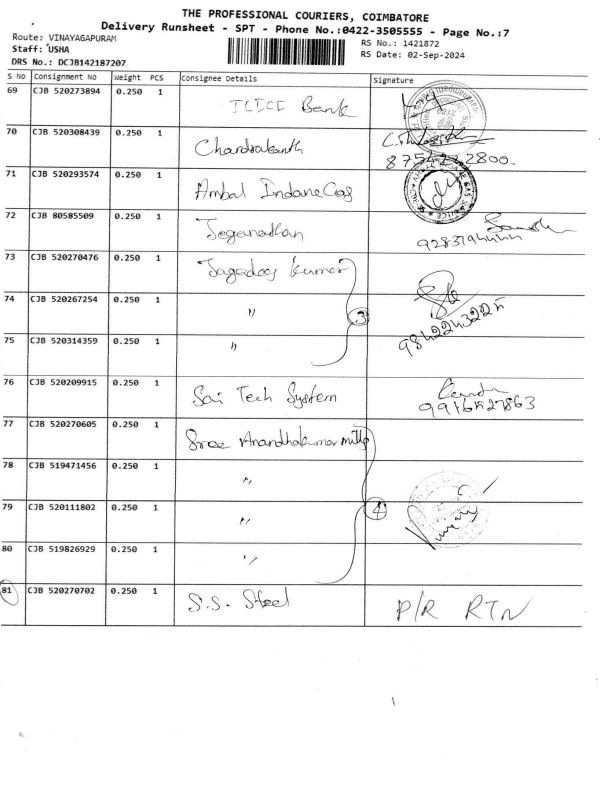 THE PROFESSIONAL COURIERS, COIMBATORE
Delivery Runsheet - SPT - Phone No.:0422-3505555 - Page No.:7
Route: VINAYAGAPURAM
Staff: USHA
DRS No.: DCJB142187207
RS No.: 1421872
RS Date: 02-Sep-2024
S No Consignment No Weight PCS Consignee Details Signature
69 CJB 520273894 0.250 1 ICICI Bank
70 CJB 520308439 0.250 1 Chandrakanth
8754222800.
71 CJB 520293574 0.250 1 Ambal Indane Gas
72 CJB 80585509 0.250 1 Jeganathan
73 CJB 520270476 0.250 1 Kumar
74 CJB 520267254 0.250 1 " 3
9842243225
75 CJB 520314359 0.250 1 "
76 CJB 520209915 0.250 1 Sai Tech System
9916527863
77 CJB 520270605 0.250 1 Sree Anandhakumar mills
78 CJB 519471456 0.250 1 "
79 CJB 520111802 0.250 1 " 4
80 CJB 519826929 0.250 1 "
81 CJB 520270702 0.250 1 S.S. Steel P/R RTN